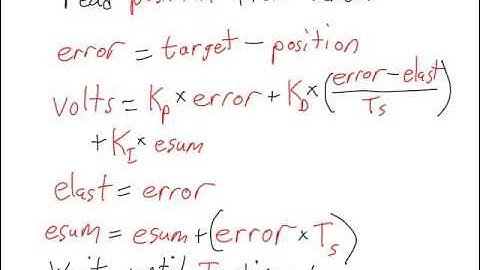 read position
error = target - position
volts = Kp × error + KD × (error - elast / Ts)
+ KI × esum
elast = error
esum = esum + (error × Ts)
Wait until